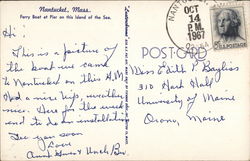 Nantucket, Mass.
Ferry Boat at Pier on this Island of the Sea.
Hi!
This is a picture of
the boat we came
to Nantucket on this A.M.
Had a nice trip, weather
nice. Here for the week
end to do an installation.
See you soon
Love
Aunt & Uncle
NANTUCKET
OCT
14
P.M.
1967
POST CARD
Miss Edith P. Bayliss
310 Hart Hall
University of Maine
Orono, Maine